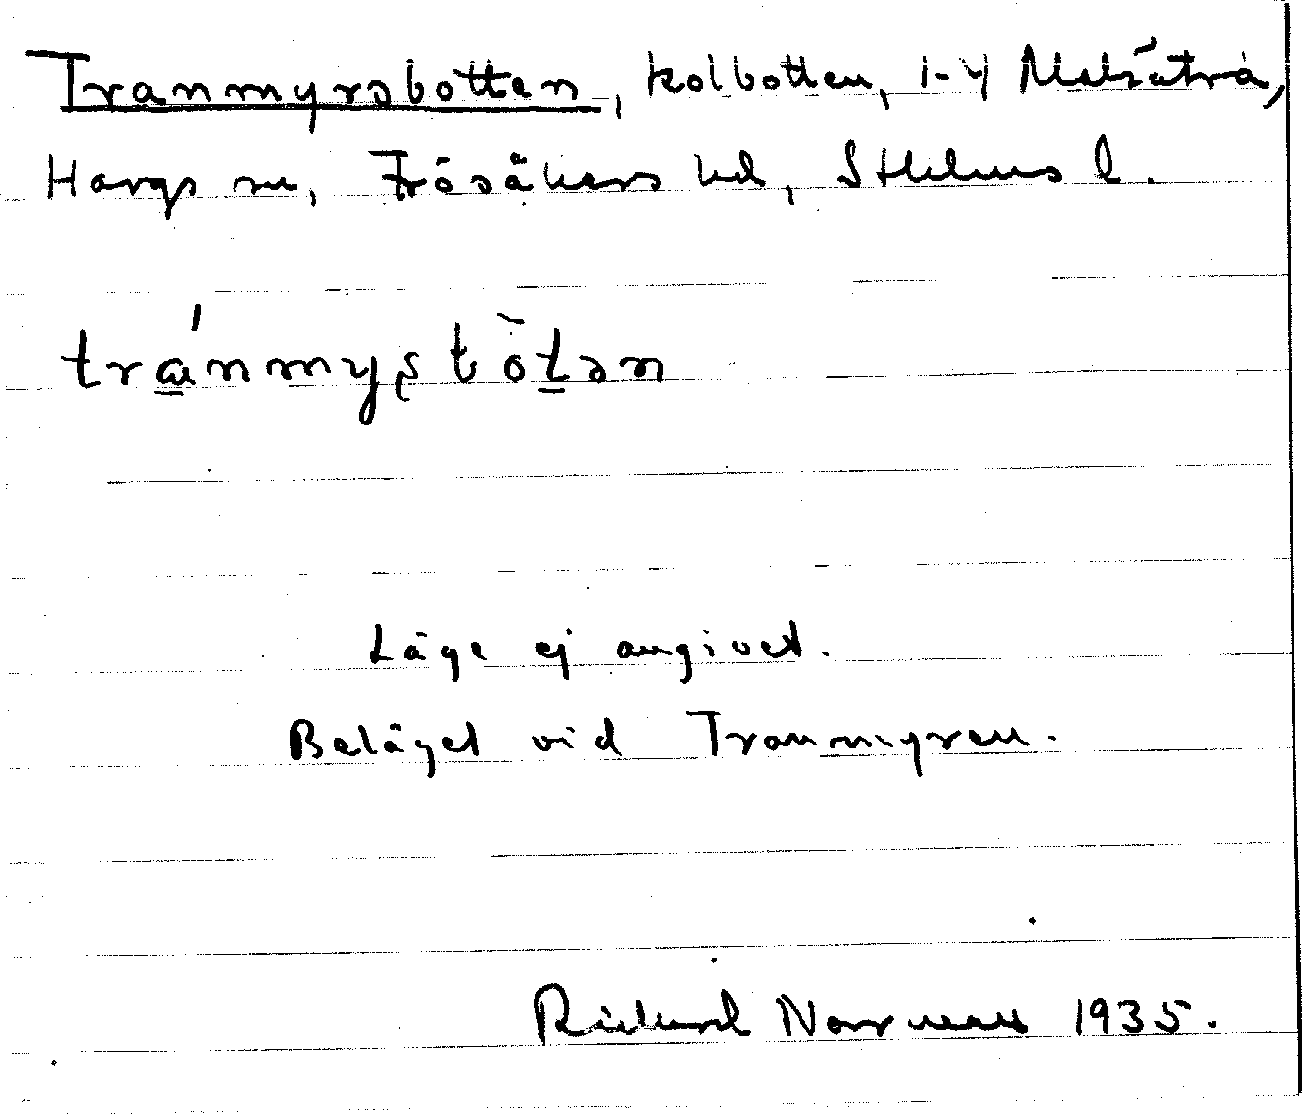 Tranmyrsbotten, kolbotten, 1-4 Malsätra,
Hargs sn, Frösåkers hd, Sthlms l.
tránmyʂtòtən
Läge ej angivet.
Beläget vid Tranmyren.
Rickard Norrman 1935.